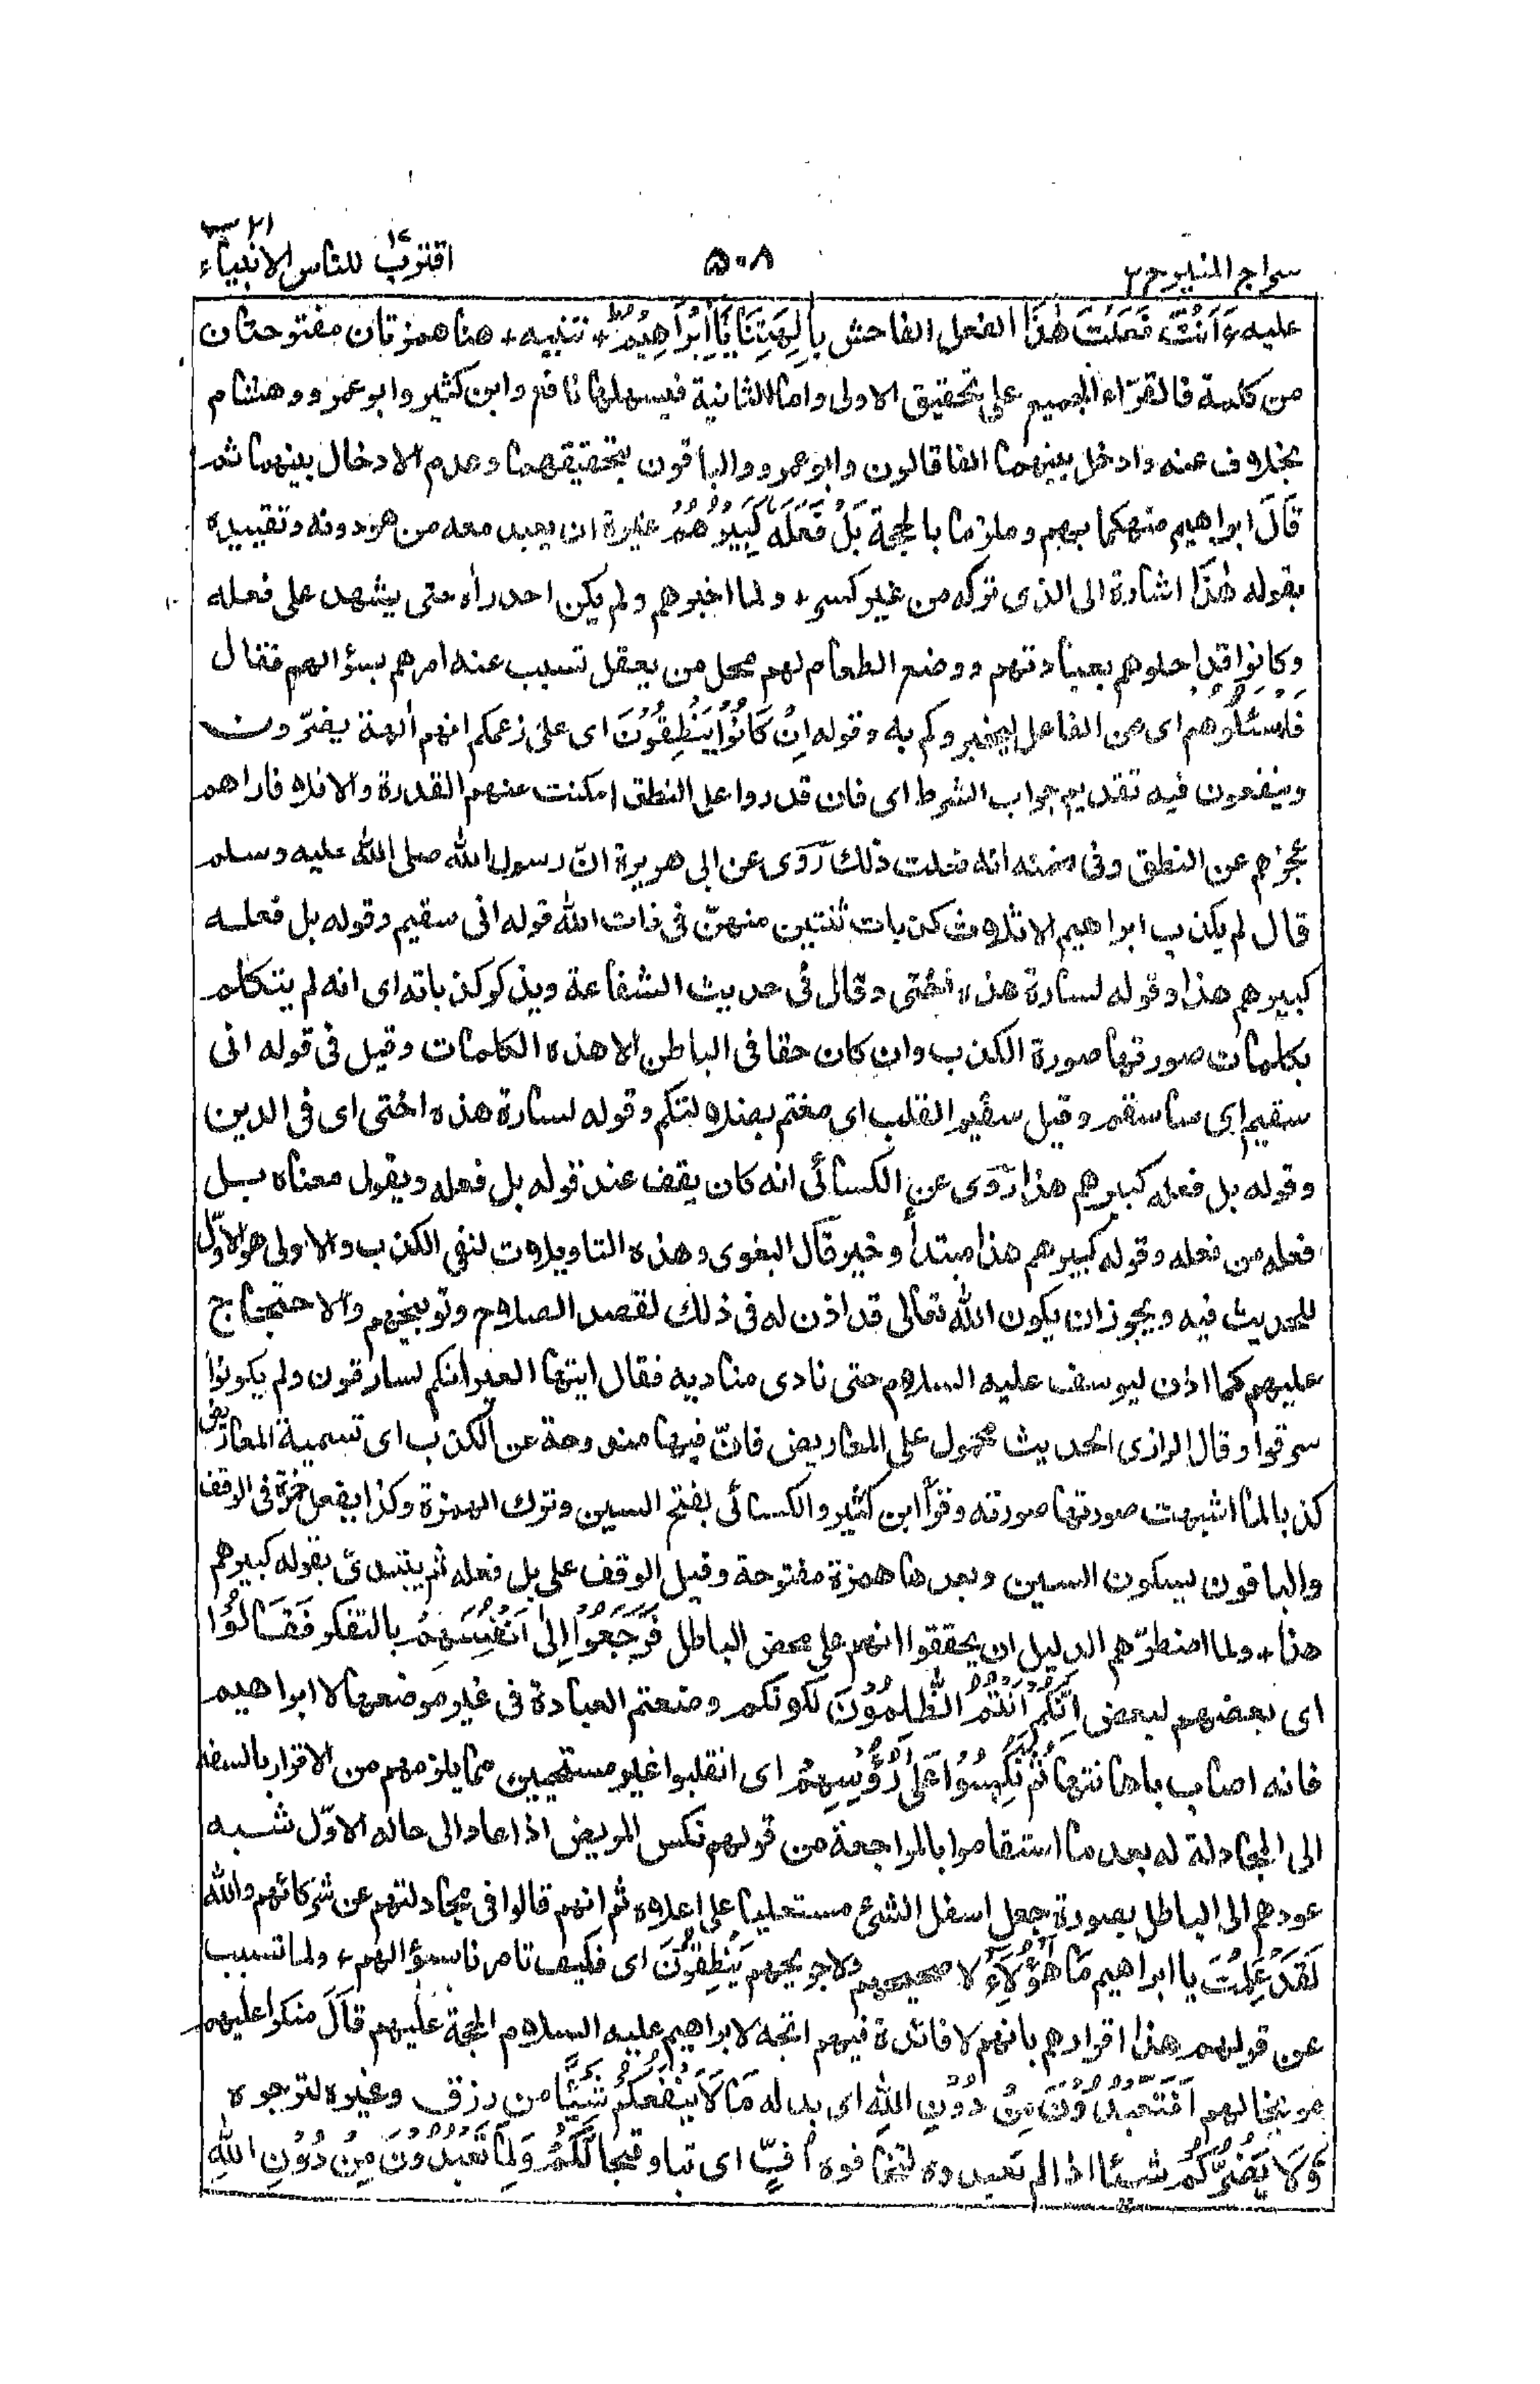 سراج المنير ج ٢
٥٠٨
اقترب ١٧ للناس الانبياء ٢١
عليه ءَاَنْتَ فَعَلْتَ هٰذَا الفعل الفاحش بِاٰلِهَتِنَا يَا اِبْرَاهِيْمُ ، تنبيه ، هنا همزتان مفتوحتان
من كلمة فالقرّاء الجميع على تحقيق الاولى واما الثانية فيسهلها نافع وابن كثير وابو عمرو وهشام
بخلاف عنه وادخل بينهما الفا قالون وابو عمرو والباقون بتحقيقهما وعدم الادخال بينهما ثم
قَالَ ابراهيم متهكما بهم وملزما بالحجة بَلْ فَعَلَهٗ كَبِيْرُهُمْ غيرة ان يعبد معه من هو دونه وتقييده
بقوله هٰذَا اشارة الى الذى تركه من غير كسر ، ولما اخبرهم ولم يكن احد راٰه حتى يشهد على فعله
وكانوا قد احلوهم بعبادتهم ووضع الطعام لهم محل من يعقل تسبب عنه امرهم بسؤالهم فقال
فَاسْئَلُوْهُم اى عن الفاعل ليخبروكم به وقوله اِنْ كَانُوْا يَنْطِقُوْنَ اى على زعمكم انهم اٰلهة يضرّون
وينفعون فيه تقديم جواب الشرط اى فان قدروا على النطق امكنت منهم القدرة والا فلا فاراهم
عجزهم عن النطق وفى ضمنه انه فعلت ذلك رَوَى عن ابى هريرة انّ رسول الله صلى الله عليه وسلم
قال لم يكذب ابراهيم الا ثلاث كذبات ثنتين منهنّ فى ذات الله قوله انى سقيم وقوله بل فعله
كبيرهم هذا وقوله لسارة هذه اختى وقال فى حديث الشفاعة ويذكر كذباته اى انه لم يتكلم
بكلمات صورتها صورة الكذب وان كان حقا فى الباطن الا هذه الكلمات وقيل فى قوله انى
سقيم اى ساسقم وقيل سقيم القلب اى مغتم بضلالتكم وقوله لسارة هذه اختى اى فى الدين
وقوله بل فعله كبيرهم هذا رَوَى عن الكسائى انه كان يقف عند قوله بل فعله ويقول معناه بل
فعله من فعله وقوله كبيرهم هذا مبتدأ وخبر قال البغوى وهذه التاويلات لنفى الكذب والاولى هو الاوّل
للحديث فيه ويجوز ان يكون الله تعالى قد اذن له فى ذلك لقصد الصلاح وتوبيخهم والاحتجاج
عليهم كما اذن ليوسف عليه السلام حتى نادى مناديه فقال ايتها العير انكم لسارقون ولم يكونوا
سرقوا وقال الرازى الحديث محمول على المعاريض فانّ فيها مندوحة عن الكذب اى تسمية المعاريض
كذبا لما اشبهت صورتها صورته وقرأ ابن كثير والكسائى بفتح السين وترك الهمزة وكذا يفعل حمزة فى الوقف
والباقون بسكون السين وبعدها همزة مفتوحة وقيل الوقف على بل فعله ثم يبتدئ بقوله كبيرهم
هذا ، ولما اضطرّهم الدليل ان يحققوا انهم على محض الباطل فَرَجَعُوْا اِلٰى اَنْفُسِهِمْ بالتفكر فَقَالُوْا
اى بعضهم لبعض اِنَّكُمْ اَنْتُمُ الظّٰلِمُوْنَ لكونكم وضعتم العبادة فى غير موضعها لا ابراهيم
فانه اصاب باهانتها ثُمَّ نُكِسُوْا عَلٰى رُؤُسِهِمْ اى انقلبوا غير مستحيين مما يلزمهم من الاقرار بالسفه
الى المجادلة له بعد ما استقاموا بالمراجعة من قولهم نكس المريض اذا عاد الى حاله الاوّل شبه
عودهم الى الباطل بصورة جعل اسفل الشئ مستعليا على اعلاه ثم انهم قالوا فى مجادلتهم عن شركائهم والله
لَقَدْ عَلِمْتَ يا ابراهيم مَا هٰٓؤُلَآءِ لا صحيحهم ولا جريحهم يَنْطِقُوْنَ اى فكيف تامرنا بسؤالهم ، ولما تسبب
عن قولهم هذا اقرارهم بانهم لا فائدة فيهم اتجه لابراهيم عليه السلام الحجة عليهم قَالَ منكرا عليهم
موبخا لهم اَفَتَعْبُدُوْنَ مِنْ دُوْنِ اللّٰهِ اى بدله مَا لَا يَنْفَعُكُمْ شَيْئًا من رزق وغيره لترجوه
وَّلَا يَضُرُّكُمْ شيئا اذا لم تعبدوه لتخافوه اُفٍّ اى تبا وقبحا لَّكُمْ وَلِمَا تَعْبُدُوْنَ مِنْ دُوْنِ اللّٰهِ